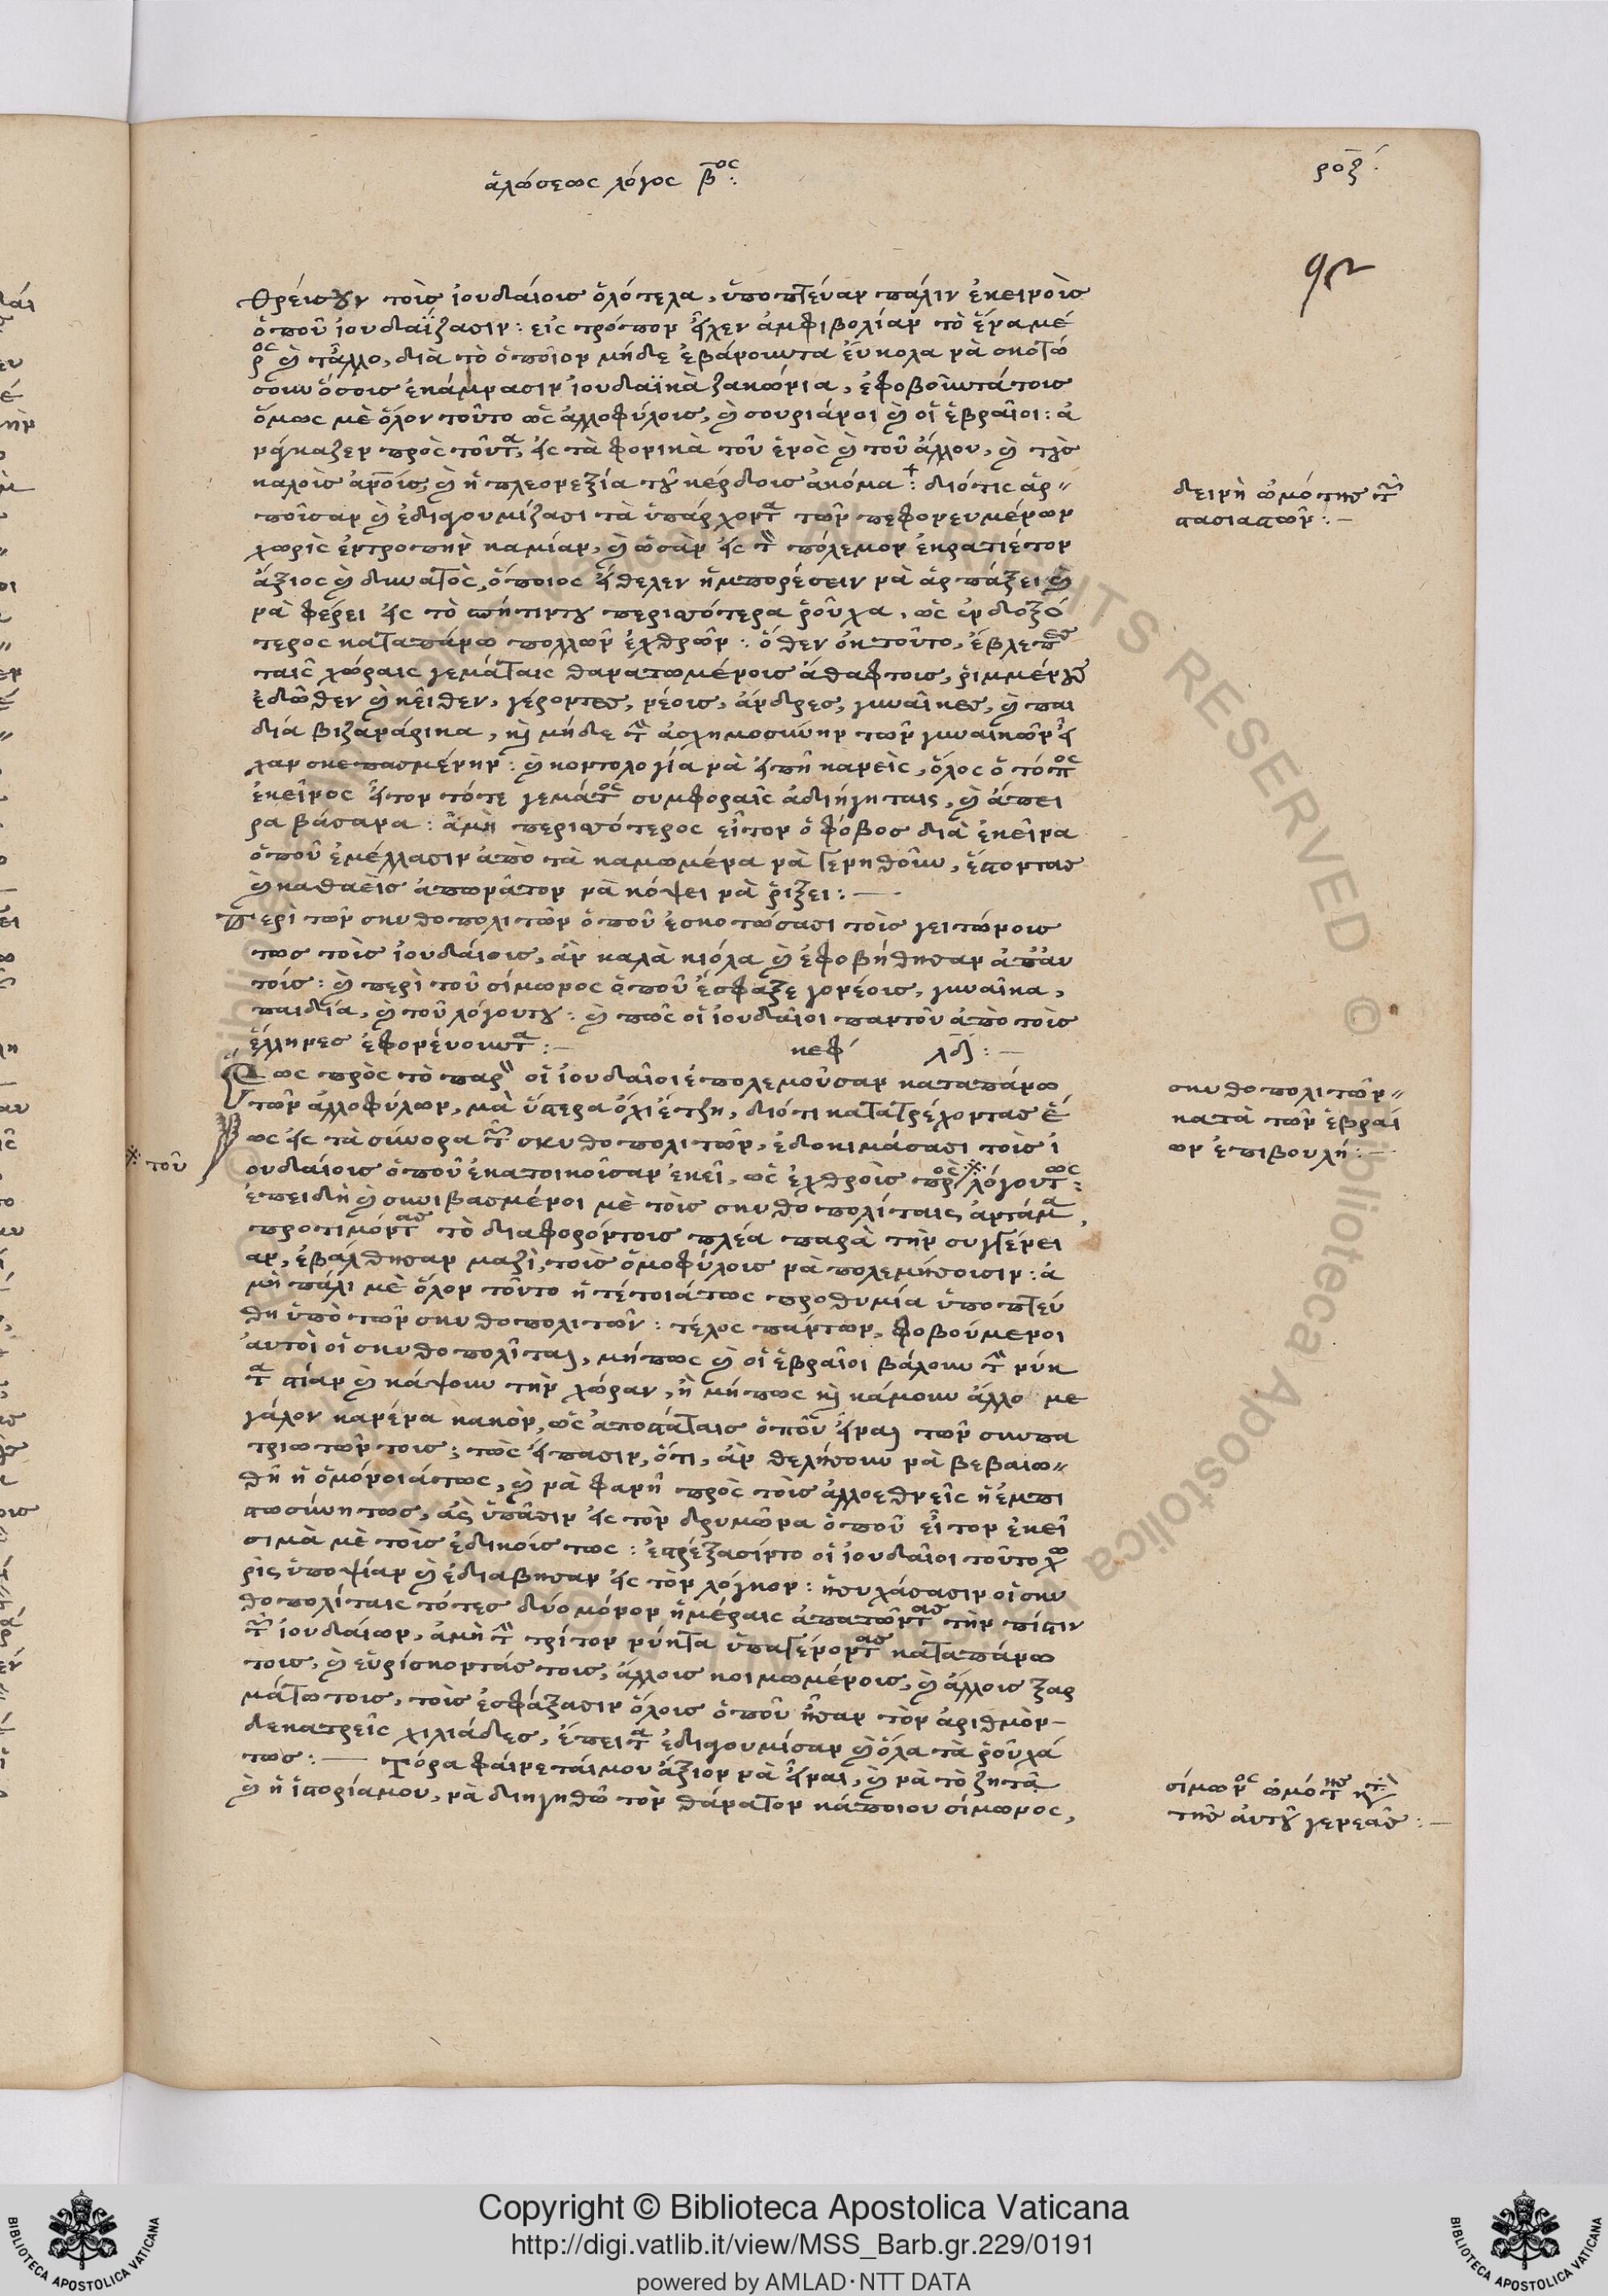 ἁλώσεως λόγος β^ος:
ροζ:
θρέισουν τοὶς ἰουδαίοις ὁλότελα, ὑποπτέυαν πάλιν ἐκεινοὶς
ὁποῦ ἰουδαΐζασιν: εἰς τρόπον εἶχεν ἀμφιβολίαν τὸ ἕνα μέ
ρος καὶ τἄλλο, διὰ τὸ ὁποῖον μήδε ἐβάνουντα ἔυκολα νὰ σκοτώ
σουν ὅσοις ἐκάμνασιν ἰουδαϊκὰ
ὅμως μὲ ὅλον τοῦτο ὡς ἀλλοφύλοις, καὶ σουριάνοι καὶ οἱ ἑβραῖοι: ἀ
νάγκαζεν πρὸς τοῦτα, εἰς τὰ φονικὰ τοῦ ἑνὸς καὶ τοῦ ἄλλου, καὶ τοὺς
καλοὶς αὐτοὶς, καὶ ἡ πλεονεξία τοῦ κέρδοις ἀκόμα: διότις ἁρ
ποῖσαν καὶ ἐδιαγουμίζασι τὰ ὑπάρχοντα τῶν πεφονευμένων
χωρὶς ἐντροπὴν καμίαν, καὶ ὡσὰν εἰς τὸν πόλεμον ἐκρατιέτον
ἄξιος καὶ δυνατὸς, ὅποιος ἤθελεν ἠμπορέσειν νὰ ἁρπάξει καὶ
νὰ φέρει εἰς τὸ σπήτιντου περισσότερα ῥοῦχα, ὡς ἐνδοξό
τερος καταπάνω πολλῶν ἐχθρῶν: ὅθεν ἐκ τοῦτο, ἔβλεπες
ταῖς χώραις γεμάταις θανατωμένοις ἄθαφτοις, ῥιμμένους
ἐδῶθεν καὶ κεῖθεν, γέροντες, νέοις, ἄνδρες, γυναῖκες, καὶ παι
διά βιζανάρικα, καὶ μήδε τὴν ἀσχημοσύνην τῶν γυναικῶν εἶ
χαν σκεπασμένην: καὶ κοντολογία νὰ εἰπῇ κανεὶς, ὅλος ὁ τόπος
ἐκεῖνος εἶτον τότε γεμάτος συμφοραῖς ἀδιήγηταις, καὶ ἄπει
ρα βάσανα: ἀμὴ περισσότερος εἶτον ὁ φόβος διὰ ἐκεῖνα
ὁποῦ ἐμέλλασιν ἀπὸ τὰ καμωμένα νὰ γενηθοῦν, ἔστοντας
καὶ καθαεὶς ἀπωνᾶτον νὰ κόψει νὰ ῥίξει:
Περὶ τῶν σκυθοπολιτῶν ὁποῦ ἐσκοτώσασι τοὶς γειτώνοις
τως τοὶς ἰουδαίοις, ἂν καλὰ κιόλα καὶ ἐφοβήθησαν ἀπ' αυ
τοίς: καὶ περὶ τοῦ σίμωνος ὁποῦ ἔσφαξε γονέοις, γυναῖκα,
παιδία, καὶ τοῦ λόγουτου: καὶ πῶς οἱ ἰουδαῖοι παντοῦ ἀπὸ τοὶς
ἕλληνες ἐφονέυουντα: κεφ' λδ:
Ἕως πρὸς τὸ παρὸν οἱ ἰουδαῖοι ἐπολεμοῦσαν καταπάνω
τῶν ἀλλοφύλων, μὰ ὕστερα ὄχι ἔτζη, διότι κατατρέχοντας ἕ
ως εἰς τὰ σύνορα τῶν σκυθοπολιτῶν, ἐδοκιμάσασι τοὶς ἰ
ουδαίοις ὁποῦ ἐκατοικοῖσαν ἐκεῖ, ὡς ἐχθροὶς πρὸς ※ λόγουτως:
※ τοῦ
ἐπειδὴ καὶ συνιβασμένοι μὲ τοὶς σκυθοπολίταις ἀντάμα,
προτιμόντας τὸ διαφορόντοις πλέα παρὰ τὴν συγγένει
αν, ἐβάλθησαν μαζὶ, τοὶς ὁμοφύλοις νὰ πολεμήσοισιν: ἀ
μὴ πάλι μὲ ὅλον τοῦτο ἡ τέτοιάτως προθυμία ὑποπτεύ
θη ὑπὸ τῶν σκυθοπολιτῶν: τέλος πάντων, φοβούμενοι
αὐτοὶ οἱ σκυθοπολῖται, μήπως καὶ οἱ ἑβραῖοι βάλουν τὴν νύκ
τα στίαν καὶ κάψουν τὴν χώραν, ἢ μήπως καὶ κάμουν ἄλλο με
γάλον κανένα κακὸν, ὡς ἀποστάταις ὁποῦ εἶναι τῶν συνπα
τριωτῶν τοις: τῶς εἴπασιν, ὅτι, ἂν θελήσουν νὰ βεβαιω
θῇ ἡ ὁμόνοιάτως, καὶ νὰ φανῇ πρὸς τοὶς ἀλλοεθνεῖς ἡ ἐμπι
στωσύνητως, ἂς ὑπᾶσιν εἰς τὸν δρυμῶνα ὁποῦ εἶτον ἐκεῖ
σιμὰ μὲ τοὶς ἐδικοίς τως: ἐστρέξασίντο οἱ ἰουδαῖοι τοῦτο χω
ρὶς ὑποψίαν καὶ ἐδιαβησαν εἰς τὸν λόγκον: ἡσυχάσασιν οἱ σκυ
θοπολίταις τότες δύο μόνον ἡμέραις ἀπατῶντας τὴν πίστιν
τῶν ἰουδαίων, ἀμὴ τὴν τρίτον νύκτα ὑπαγένοντας καταπάνω
τοις, καὶ εὑρίσκοντάς τοις, ἄλλοις κοιμωμένοις, καὶ ἄλλοις ξαρ
μάτωτοις, τοὶς ἐσφάξασιν ὅλοις ὁποῦ ἦσαν τὸν ἀριθμὸν
δεκατρεῖς χιλιάδες, ἔπειτα ἐδιαγουμίσαν καὶ ὅλα τὰ ῥοῦχά
τως: Τόρα φάινετάιμου ἄξιον νὰ εἶναι, καὶ νὰ τὸ ζητᾶ
καὶ ἡ ἱστορίαμου, νὰ διηγηθῶ τὸν θάνατον κάποιου σίμωνος,
δεινὴ ὠμότης τῶν
στασιαστῶν:
σκυθοπολιτῶν
κατὰ τῶν ἑβραί
ων ἐπιβουλή:
σίμωνος ὠμότης
τῆς ἀυτοῦ γενεᾶς:
Copyright © Biblioteca Apostolica Vaticana
http://digi.vatlib.it/view/MSS_Barb.gr.229/0191
powered by AMLAD·NTT DATA
BIBLIOTECA APOSTOLICA VATICANA
BIBLIOTECA APOSTOLICA VATICANA